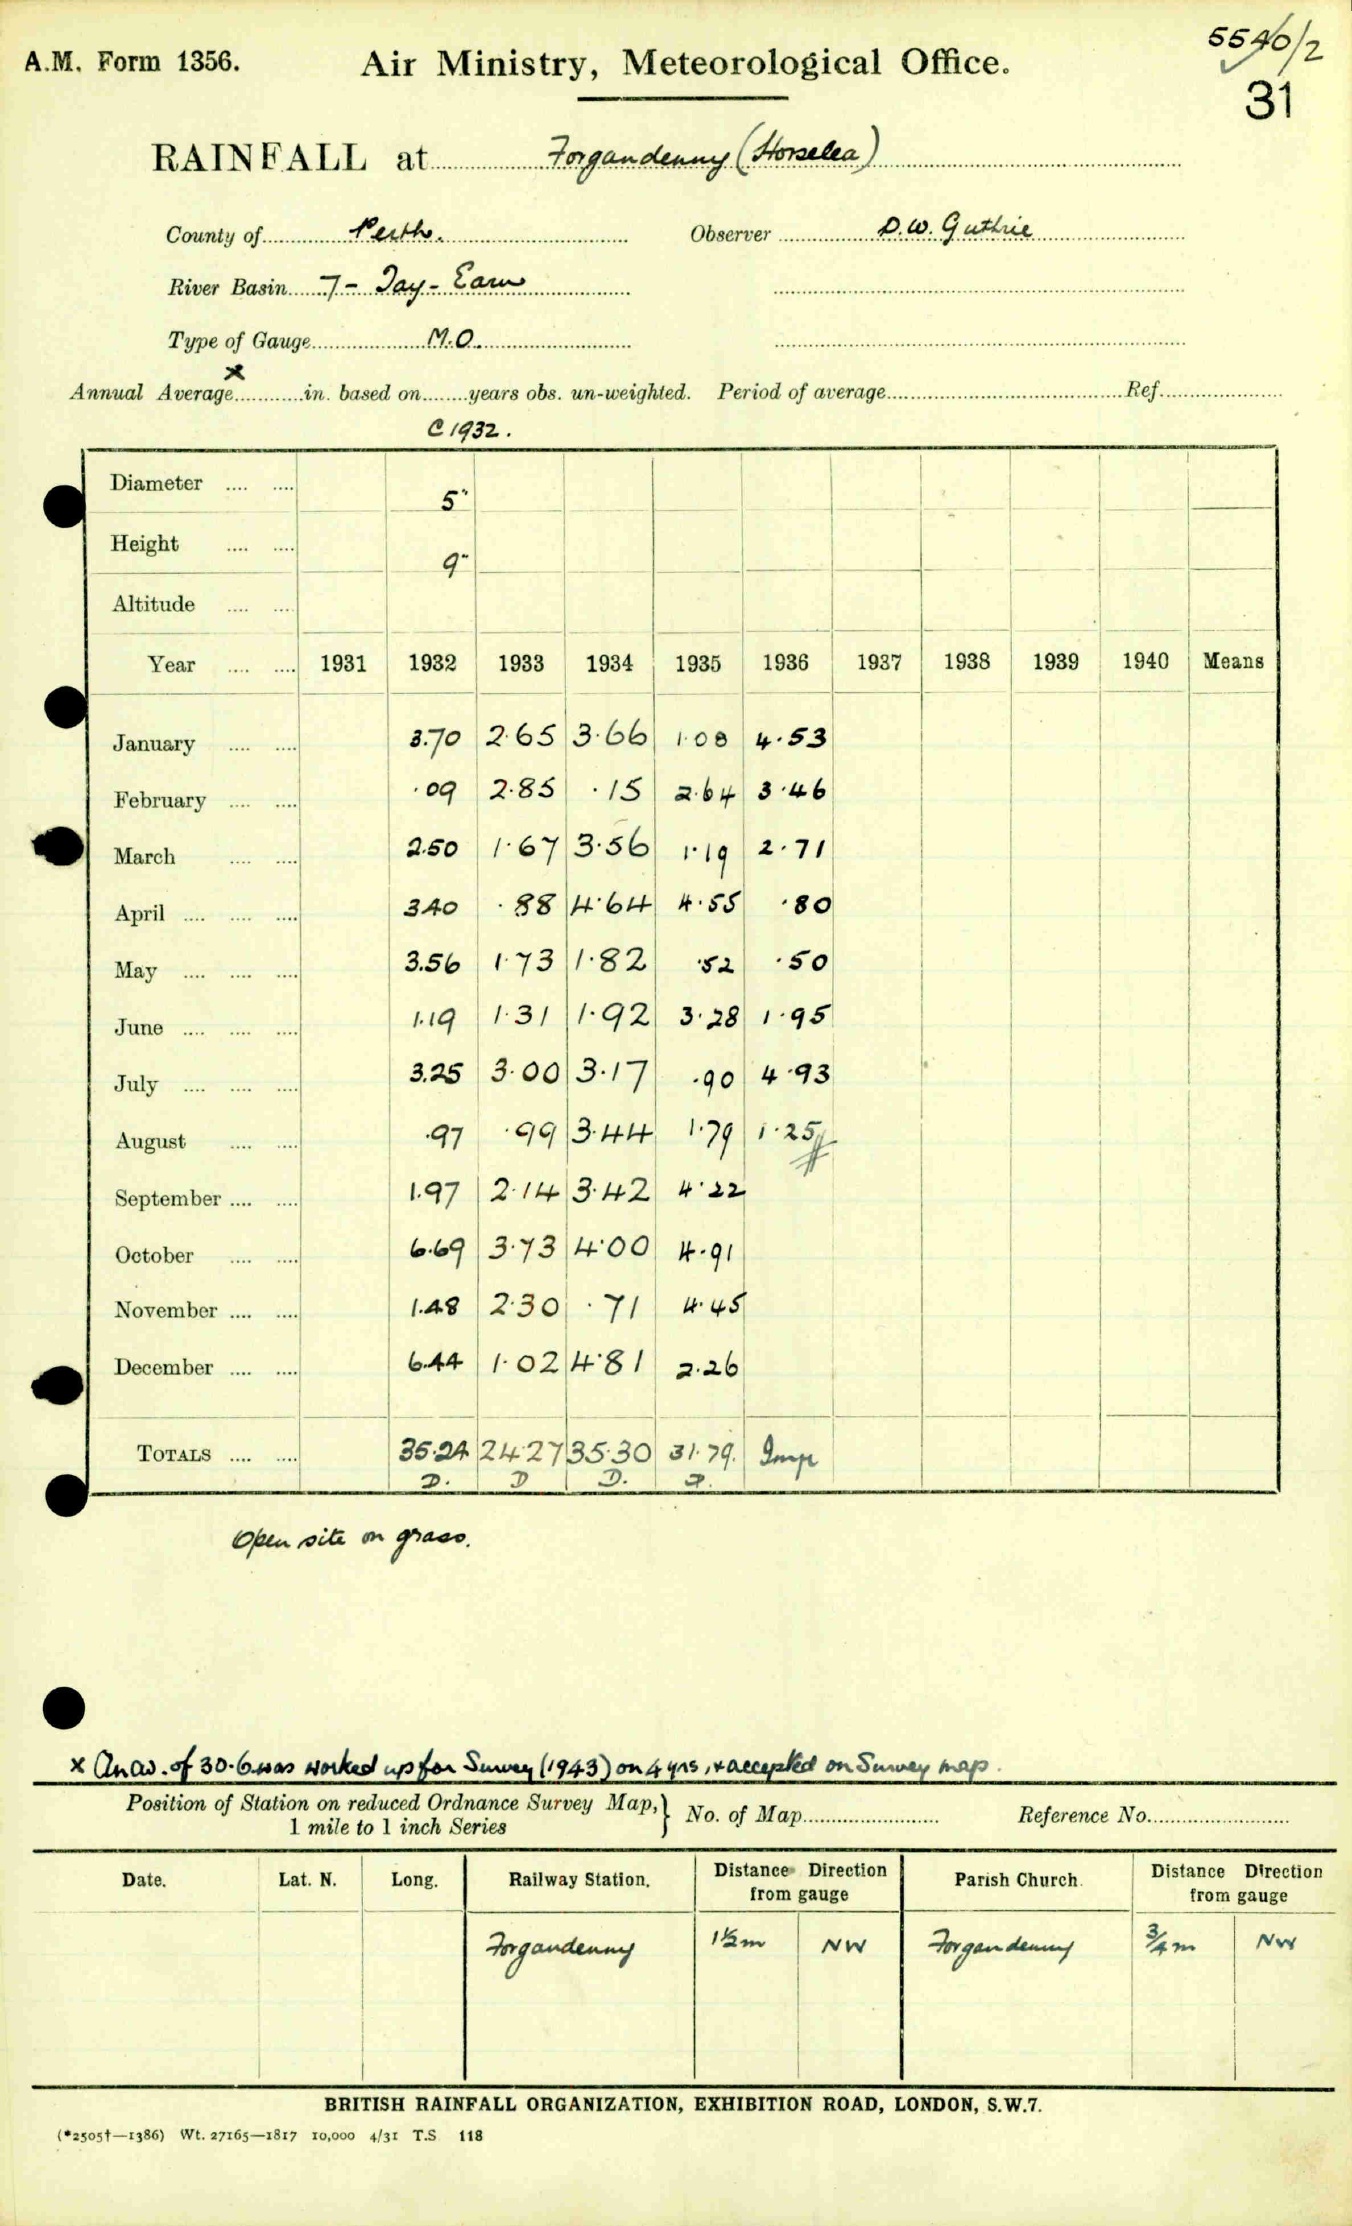 A.M. Form 1356. Air Ministry, Meteorological Office. 5540/2
31
RAINFALL at Forgandenny (Horselea)
County of Perth. Observer D.W. Guthrie
River Basin 7 - Tay - Earn
Type of Gauge M.O.
x
Annual Average in. based on years obs. un-weighted. Period of average Ref.
C 1932.
Diameter 5"
Height 9"
Altitude
Year 1931 1932 1933 1934 1935 1936 1937 1938 1939 1940 Means
January 3.70 2.65 3.66 1.08 4.53
February .09 2.85 .15 2.64 3.46
March 2.50 1.67 3.56 1.19 2.71
April 3.40 .88 4.64 4.55 .80
May 3.56 1.73 1.82 .52 .50
June 1.19 1.31 1.92 3.28 1.95
July 3.25 3.00 3.17 .90 4.93
August .97 .99 3.44 1.79 1.25
September 1.97 2.14 3.42 4.22
October 6.69 3.73 4.00 4.91
November 1.48 2.30 .71 4.45
December 6.44 1.02 4.81 2.26
TOTALS 35.24 24.27 35.30 31.79 Imp
D. D D. D.
Open site on grass.
x An av. of 30.6 was worked up for Survey (1943) on 4 yrs, & accepted on Survey map.
Position of Station on reduced Ordnance Survey Map, } No. of Map Reference No.
1 mile to 1 inch Series
Date. Lat. N. Long. Railway Station. Distance Direction from gauge Parish Church Distance Direction from gauge
Forgandenny 1½m NW Forgandenny ¾m NW
BRITISH RAINFALL ORGANIZATION, EXHIBITION ROAD, LONDON, S.W.7.
(*2505†—1386) Wt. 27165—1817 10,000 4/31 T.S 118